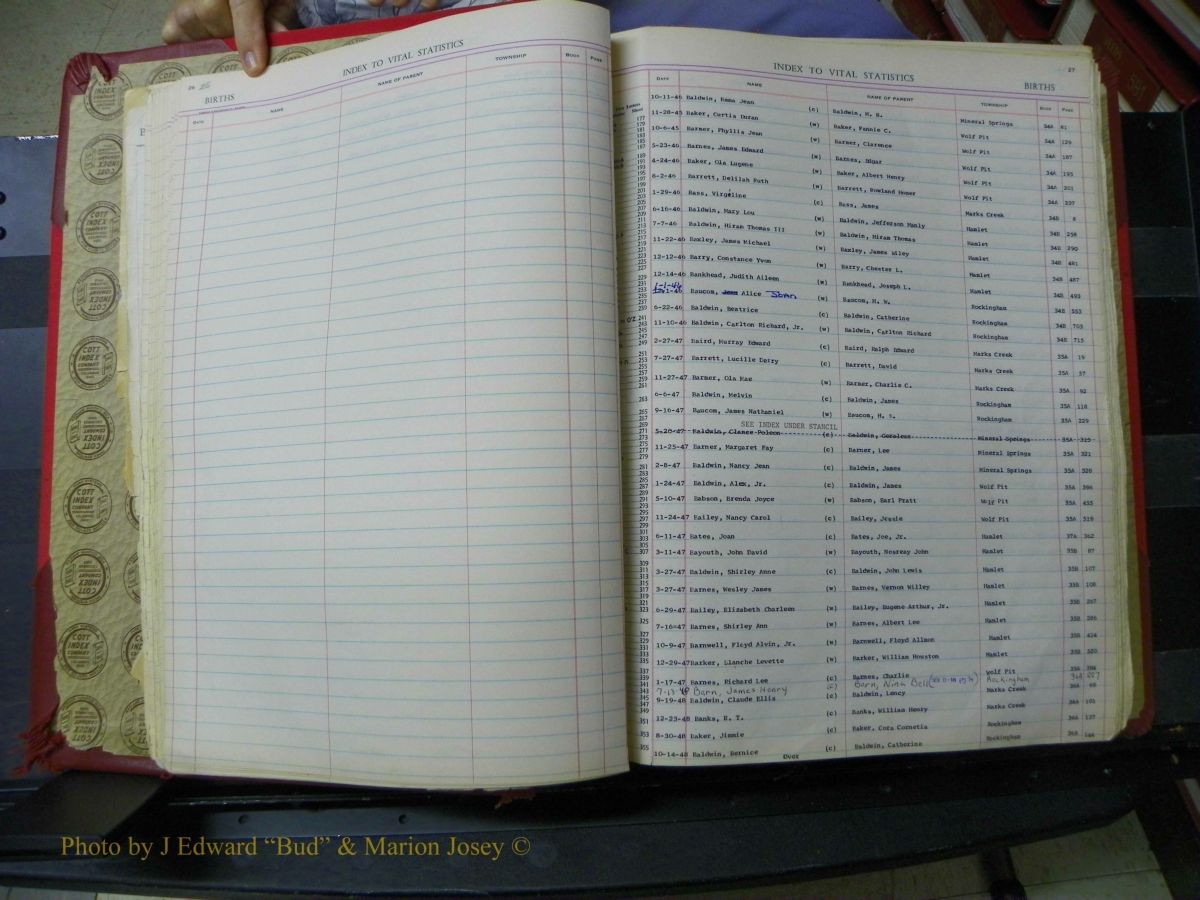 26
INDEX TO VITAL STATISTICS
BIRTHS
NAME
NAME OF PARENT
TOWNSHIP
BOOK
PAGE
DATE
COTT INDEX COMPANY
27
INDEX TO VITAL STATISTICS
BIRTHS
DATE NAME NAME OF PARENT TOWNSHIP BOOK PAGE
10-11-46 Baldwin, Emma Jean (c) Baldwin, H. B. Mineral Springs 34A 81
11-28-45 Baker, Curtis Duran (w) Baker, Fannie C. Wolf Pit 34A 129
10-6-45 Barner, Phyllis Jean (w) Barner, Clarence Wolf Pit 34A 187
5-23-46 Barnes, James Edward (w) Barnes, Edgar Wolf Pit 34A 195
4-24-46 Baker, Ola Lugene (w) Baker, Albert Henry Wolf Pit 34A 201
6-2-46 Barrett, Delilah Ruth (w) Barrett, Rowland Homer Wolf Pit 34A 237
1-29-46 Bass, Virgeline (c) Bass, James Marks Creek 34B 8
6-16-46 Baldwin, Mary Lou (w) Baldwin, Jefferson Manly Hamlet 34B 258
7-7-46 Baldwin, Hiram Thomas III (w) Baldwin, Hiram Thomas Hamlet 34B 290
11-22-46 Baxley, James Michael (w) Baxley, James Wiley Hamlet 34B 481
12-12-46 Barry, Constance Yvon (w) Barry, Chester L. Hamlet 34B 487
12-14-46 Bankhead, Judith Aileen (w) Bankhead, Joseph L. Hamlet 34B 493
1-1-46 Baucom, Alice Joan (w) Baucom, H. W. Rockingham 34B 553
6-22-46 Baldwin, Beatrice (c) Baldwin, Catherine Rockingham 34B 703
11-10-46 Baldwin, Carlton Richard, Jr. (w) Baldwin, Carlton Richard Rockingham 34B 715
2-27-47 Baird, Murray Edward (c) Baird, Ralph Edward Marks Creek 35A 19
7-27-47 Barrett, Lucille Derry (c) Barrett, David Marks Creek 35A 57
11-27-47 Barner, Ola Mae (w) Barner, Charlie C. Marks Creek 35A 92
6-6-47 Baldwin, Melvin (c) Baldwin, James Rockingham 35A 118
9-16-47 Baucom, James Nathaniel (w) Baucom, H. Rockingham 35A 229
SEE INDEX UNDER STANCIL
5-28-47 Baldwin, Clance Poleon (c) Baldwin, Mineral Springs 35A 319
11-25-47 Barner, Margaret Fay (c) Barner, Lee Mineral Springs 35A 321
2-8-47 Baldwin, Nancy Jean (c) Baldwin, James Mineral Springs 35A 328
1-24-47 Baldwin, Alex, Jr. (c) Baldwin, James Wolf Pit 35A 396
5-10-47 Babson, Brenda Joyce (w) Babson, Earl Pratt Wolf Pit 35A 435
11-24-47 Bailey, Nancy Carol (c) Bailey, Jessie Wolf Pit 35A 518
6-11-47 Bates, Joan (c) Bates, Joe, Jr. Hamlet 37A 362
3-11-47 Bayouth, John David (w) Bayouth, Nesreay John Hamlet 35B 87
3-27-47 Baldwin, Shirley Anne (c) Baldwin, John Lewis Hamlet 35B 107
3-27-47 Barnes, Wesley James (w) Barnes, Vernon Willey Hamlet 35B 108
6-29-47 Bailey, Elizabeth Charleen (w) Bailey, Eugene Arthur, Jr. Hamlet 35B 267
7-16-47 Barnes, Shirley Ann (w) Barnes, Albert Lee Hamlet 35B 286
10-9-47 Barnwell, Floyd Alvin, Jr. (w) Barnwell, Floyd Alison Hamlet 35B 424
12-29-47 Barker, Llanche Levette (w) Barker, William Houston Hamlet 35B 550
1-17-47 Barnes, Richard Lee (c) Barnes, Charlie Wolf Pit 35A 394
7-13-48 Barn, James Henry (c) Barn, Nina Bell Rockingham 36A
9-19-48 Baldwin, Claude Ellis (c) Baldwin, Loncy Marks Creek 36A
12-23-48 Banks, R. T. (c) Banks, William Henry Marks Creek 36A 101
8-30-48 Baker, Jimmie (c) Baker, Cora Cornetia Rockingham 36A 137
10-14-48 Baldwin, Bernice (c) Baldwin, Catherine Rockingham 36A
Over
Photo by J Edward “Bud” & Marion Josey ©